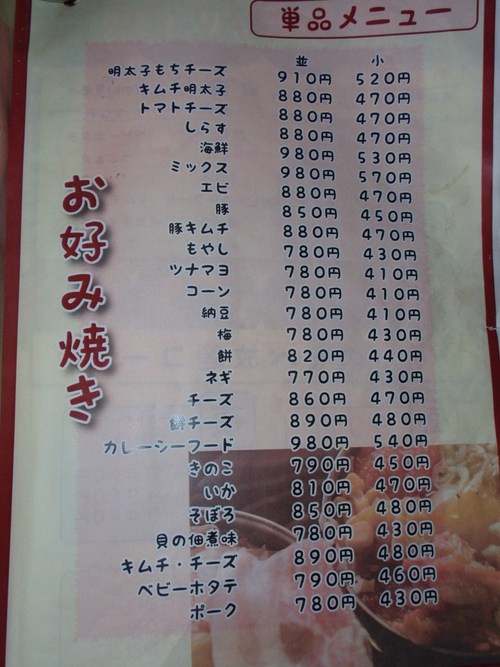 単品メニュー
お好み焼き
並 小
明太子もちチーズ 910円 520円
キムチ明太子 880円 470円
トマトチーズ 880円 470円
しらす 880円 470円
海鮮 980円 530円
ミックス 980円 570円
エビ 880円 470円
豚 850円 450円
豚キムチ 880円 470円
もやし 780円 430円
ツナマヨ 780円 410円
コーン 780円 410円
納豆 780円 410円
梅 780円 430円
餅 820円 440円
ネギ 770円 430円
チーズ 860円 470円
餅チーズ 890円 480円
カレーシーフード 980円 540円
きのこ 790円 450円
いか 810円 470円
そぼろ 850円 480円
貝の佃煮味 780円 430円
キムチ・チーズ 890円 480円
ベビーホタテ 790円 460円
ポーク 780円 430円